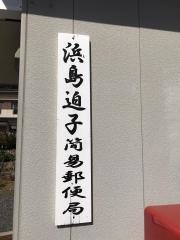 浜島迫子簡易郵便局